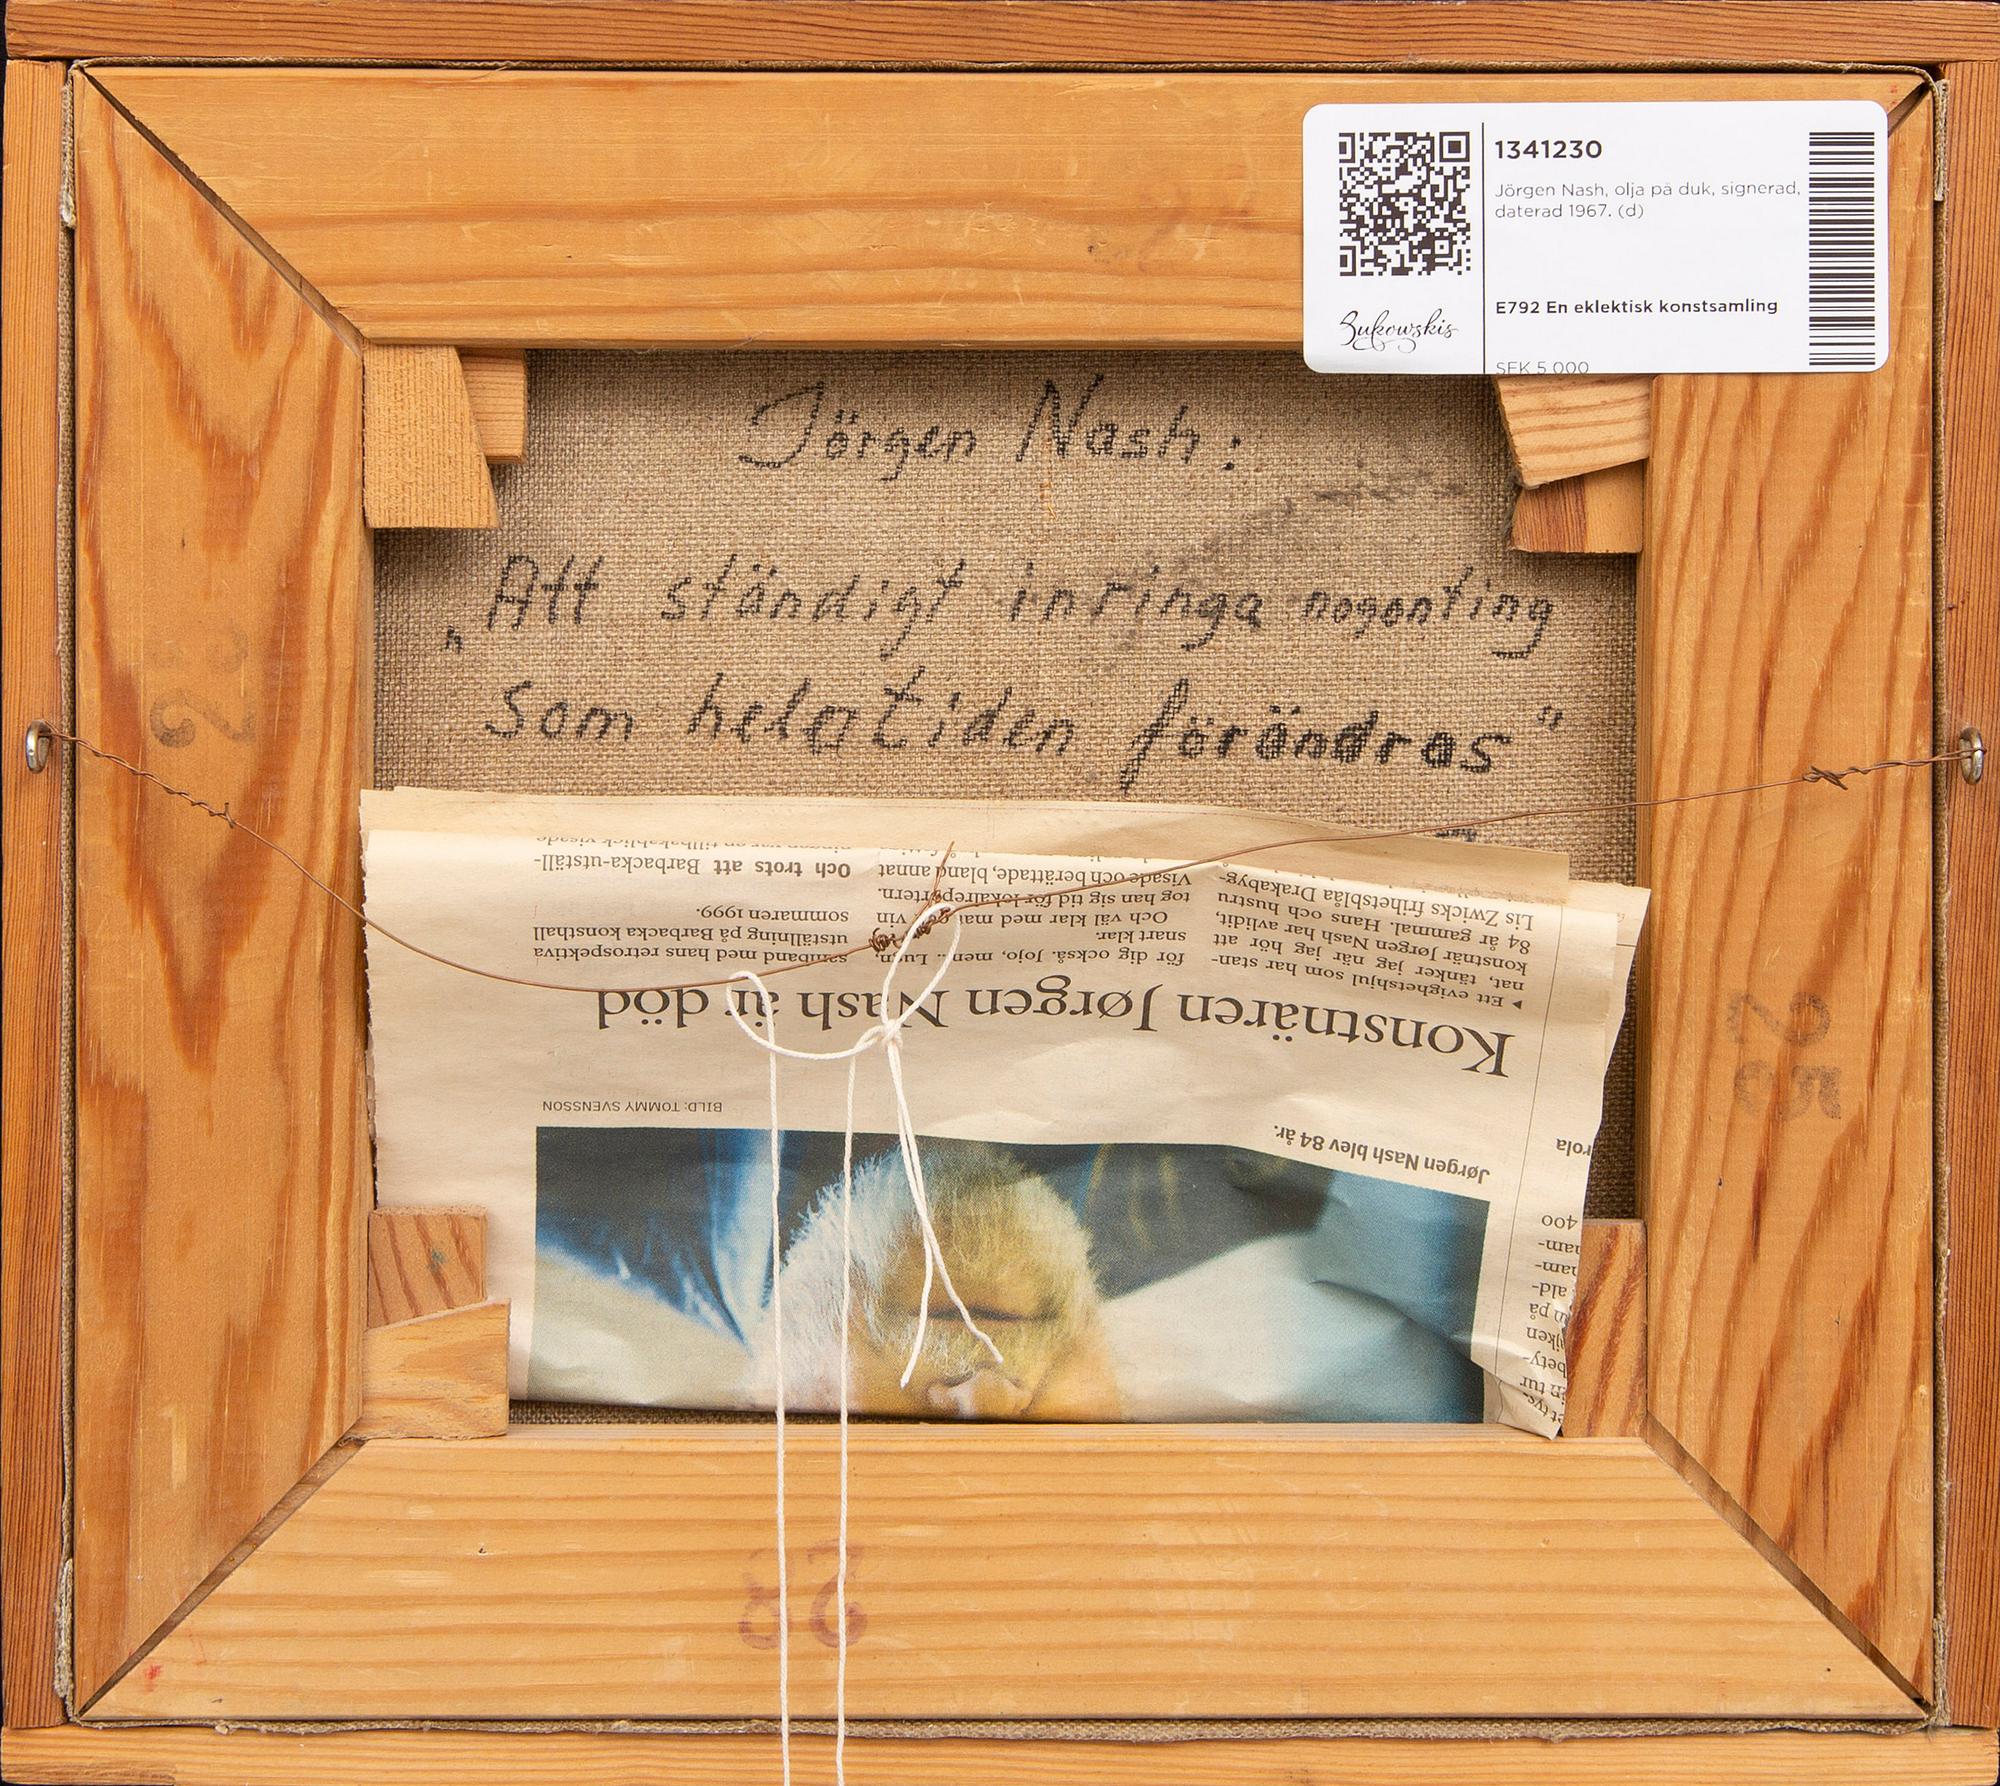 1341230
Jörgen Nash, olja på duk, signerad,
daterad 1967. (d)
E792 En eklektisk konstsamling
Bukowskis
SEK 5 000
Jörgen Nash:
"Att ständigt inringa nogonting
som helatiden förändras"
Jørgen Nash blev 84 år.
BILD: TOMMY SVENSSON
Konstnären Jørgen Nash är död
▸ Ett evighetshjul som har stan-
nat, tänker jag när jag hör att
konstnär Jørgen Nash har avlidit,
84 år gammal. Hans och hustru
Lis Zwicks frihetsblåa Drakabyg-
för dig också. Jojo, men... Lugn,
snart klar.
Och väl klar med vin
tog han sig tid för lokalreportern.
Visade och berättade, bland annat
samband med hans retrospektiva
utställning på Barbacka konsthall
sommaren 1999.
Och trots att Barbacka-utställ-
ningen var en tillbakablick visade
rola
400
nam-
ham-
ald-
på
jken
bety-
tur